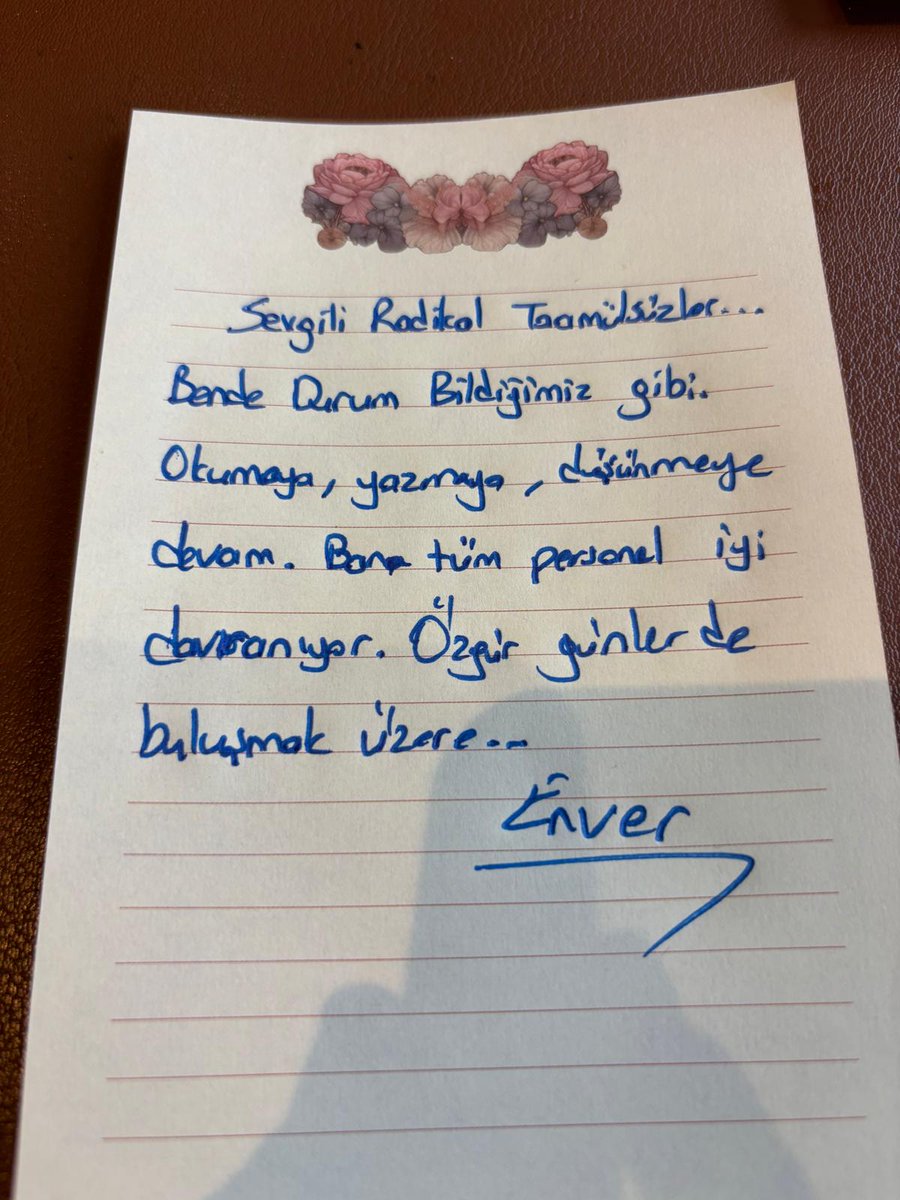 Sevgili Radikal Taamülsüzler...
Bende Durum Bildiğimiz gibi.
Okumaya, yazmaya, düşünmeye
devam. Bana tüm personel iyi
davranıyor. Özgür günlerde
buluşmak üzere...
Enver